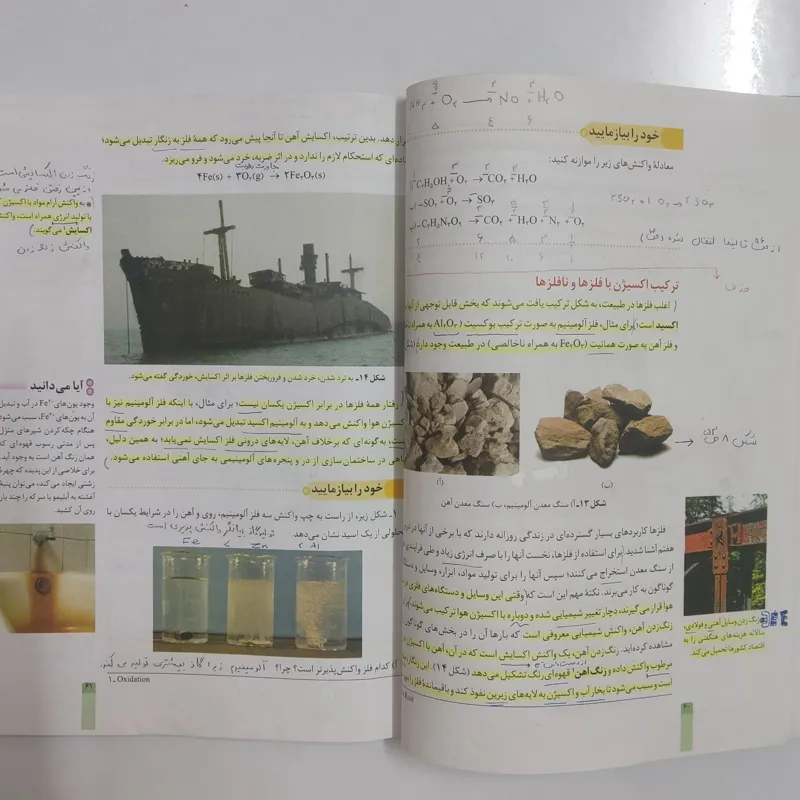 NH۳ + O۲ → NO + H۲O
خود را بیازمایید
معادلهٔ واکنش‌های زیر را موازنه کنید:
C۲H۵OH + O۲ → CO۲ + H۲O
ب) SO۲ + O۲ → SO۳
۲SO۲ + ۱O۲ → ۲SO۳
پ) C۳H۵N۳O۹ → CO۲ + H۲O + N۲ + O۲
ترکیب اکسیژن با فلزها و نافلزها
اغلب فلزها در طبیعت، به شکل ترکیب یافت می‌شوند که بخش قابل توجهی از آنها
اکسید است؛ برای مثال، فلز آلومینیم به صورت ترکیب بوکسیت (Al۲O۳ به همراه
و فلز آهن به صورت هماتیت (Fe۲O۳ به همراه ناخالصی) در طبیعت وجود دارد
(آ)
(ب)
شکل ۱۳ـ آ) سنگ معدن آلومینیم، ب) سنگ معدن آهن
فلزها کاربردهای بسیار گسترده‌ای در زندگی روزانه دارند که با برخی از آنها در
هفتم آشنا شدید. برای استفاده از فلزها، نخست آنها را با صرف انرژی زیاد و طی فرایندی
از سنگ معدن استخراج می‌کنند؛ سپس آنها را برای تولید مواد، ابزار، وسایل و
گوناگون به کار می‌برند. نکتهٔ مهم این است که وقتی این وسایل و دستگاه‌های فلزی در
هوا قرار می‌گیرند، دچار تغییر شیمیایی شده و دوباره با اکسیژن هوا ترکیب می‌شوند.
زنگ‌زدن آهن، واکنش شیمیایی معروفی است که بارها آن را در بخش‌های گوناگون
مشاهده کرده‌اید. زنگ‌زدن آهن، یک واکنش اکسایش است که در آن، آهن با اکسیژن
مرطوب واکنش داده و زنگ آهن۱ قهوه‌ای رنگ تشکیل می‌دهد (شکل ۱۴). این زنگار
است و سبب می‌شود تا بخار آب و اکسیژن به لایه‌های زیرین نفوذ کند و باقیماندهٔ فلز را
زنگ زدن وسایل آهنی و فولادی،
سالانه هزینه‌های هنگفتی را به
اقتصاد کشورها تحمیل می‌کند.
۶۰
دهد. بدین ترتیب، اکسایش آهن تا آنجا پیش می‌رود که همهٔ فلز به زنگار تبدیل می‌شود؛
که استحکام لازم را ندارد و در اثر ضربه، خرد می‌شود و فرو می‌ریزد.
۴Fe(s) + ۳O۲(g) → ۲Fe۲O۳(s)
به واکنش آرام مواد با اکسیژن
با تولید انرژی همراه است، واکنش
اکسایش۱ می‌گویند.
واکنش زنگ زدن
شکل ۱۴ـ به ترد شدن، خرد شدن و فروریختن فلزها بر اثر اکسایش، خوردگی گفته می‌شود.
رفتار همهٔ فلزها در برابر اکسیژن یکسان نیست؛ برای مثال، با اینکه فلز آلومینیم نیز با
اکسیژن هوا واکنش می‌دهد و به آلومینیم اکسید تبدیل می‌شود، اما در برابر خوردگی مقاوم
است؛ به گونه‌ای که برخلاف آهن، لایه‌های درونی فلز اکسایش نمی‌یابد؛ به همین دلیل،
گاهی در ساختمان سازی از در و پنجره‌های آلومینیمی به جای آهنی استفاده می‌شود.
آیا می‌دانید
وجود یون‌های Fe۲+ در آب و تبدیل
آن به یون‌های Fe۳+، سبب می‌شود
هنگام چکه‌کردن شیرهای منزل
پس از مدتی رسوب قهوه‌ای که
همان رنگ آهن است به وجود آید.
برای خلاصی از این پدیده که چهرهٔ
زشتی ایجاد می‌کند، می‌توان پنبهٔ
آغشته به آبلیمو یا سرکه را چند بار
روی آن کشید.
خود را بیازمایید
۱ـ شکل زیر، از راست به چپ واکنش سه فلز آلومینیم، روی و آهن را در شرایط یکسان با
محلولی از یک اسید نشان می‌دهد.
تولید گاز بیانگر واکنش پذیری است
Fe < Zn < Al
آ) کدام فلز واکنش‌پذیرتر است؟ چرا؟ آلومینیم زیرا گاز بیشتری تولید می کند
۱ـ Oxidation
۶۱